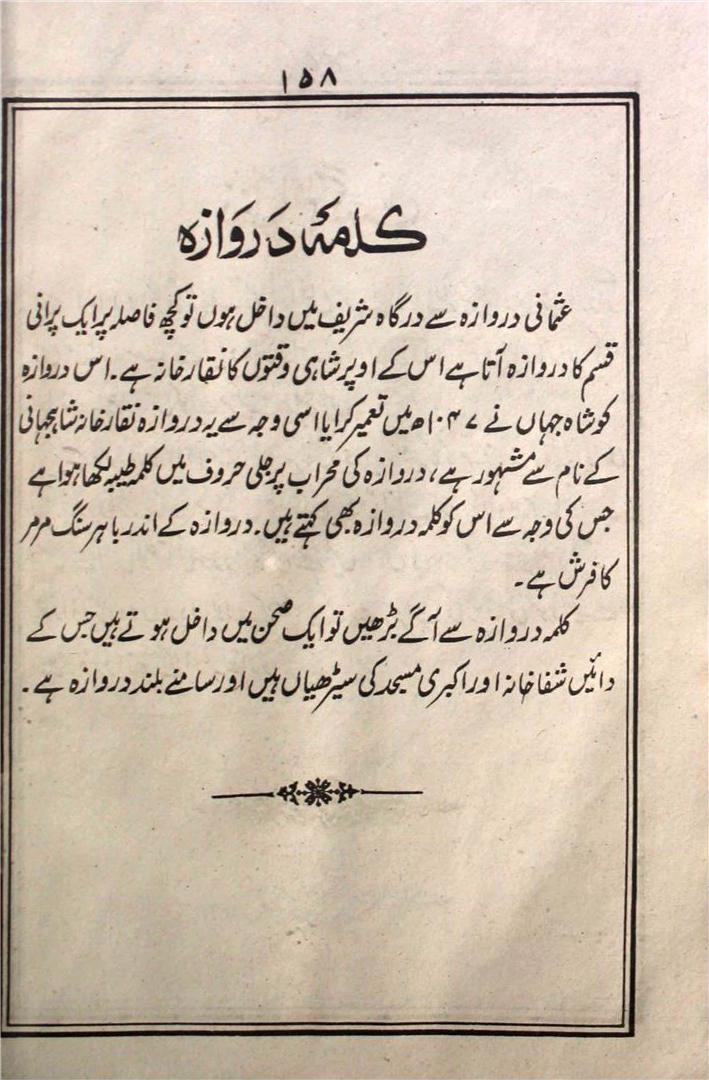 ۱۵۸
کلمہ دروازہ
عثمانی دروازہ سے درگاہ شریف میں داخل ہوں تو کچھ فاصلہ پر ایک پرانی
قسم کا دروازہ آتا ہے اس کے اوپر شاہی وقتوں کا نقار خانہ ہے۔ اس دروازہ
کو شاہ جہاں نے ۱۰۴۷ھ میں تعمیر کرایا اسی وجہ سے یہ دروازہ نقار خانہ شاہجہانی
کے نام سے مشہور ہے، دروازہ کی محراب پر جلی حروف میں کلمہ طیبہ لکھا ہوا ہے
جس کی وجہ سے اس کو کلمہ دروازہ بھی کہتے ہیں۔ دروازہ کے اندر باہر سنگ مرمر
کا فرش ہے۔
کلمہ دروازہ سے آگے بڑھیں تو ایک صحن میں داخل ہوتے ہیں جس کے
دائیں شفا خانہ اور اکبری مسجد کی سیڑھیاں ہیں اور سامنے بلند دروازہ ہے۔